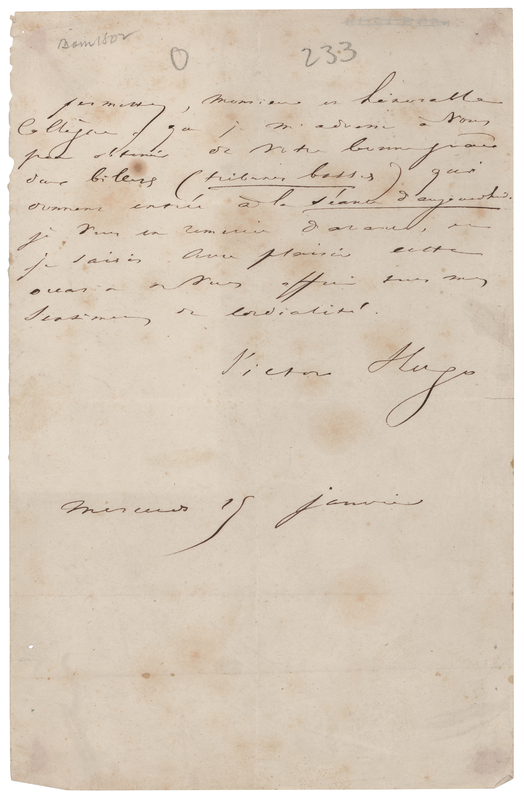 0 233
permettez, monsieur et honorable
Collègue, que je m'adresse à vous
pour obtenir de votre bonne grâce
deux billets (tribunes basses) qui
donnent entrée à la séance d'aujourd'hui.
je vous en remercie d'avance, et
je saisis avec plaisir cette
occasion de vous offrir tous mes
sentiments de cordialité.
Victor Hugo
mercredi 15 janvier